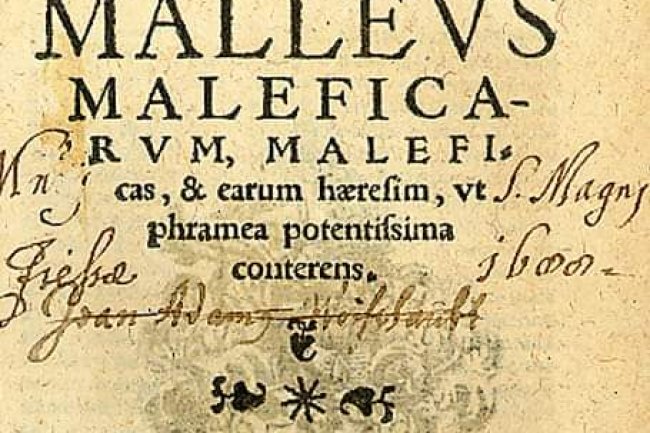 MALLEVS
MALEFICA-
RVM, MALEFI-
cas, & earum hæresim, vt
phramea potentissima
conterens.
S. Magnj
1600
Joan Adam